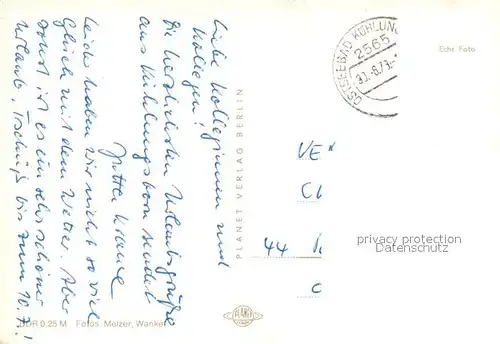 Liebe Kolleginnen und
Kollegen!
Die herzlichsten Urlaubsgrüße
aus Kühlungsborn sendet
Jutta Krause
Leider haben wir nicht so viel
Glück mit dem Wetter. Aber
sonst ist es ein sehr schöner
Urlaub. Tschüß bis zum 10.7.!
DDR 0.25 M Fotos: Melzer, Wanke
PLANET VERLAG BERLIN
PLANET
OSTSEEBAD KÜHLUN
2565
30.-6.73.-
Echt Foto
VE
44
privacy protection
www.ansichtskarten-center.de